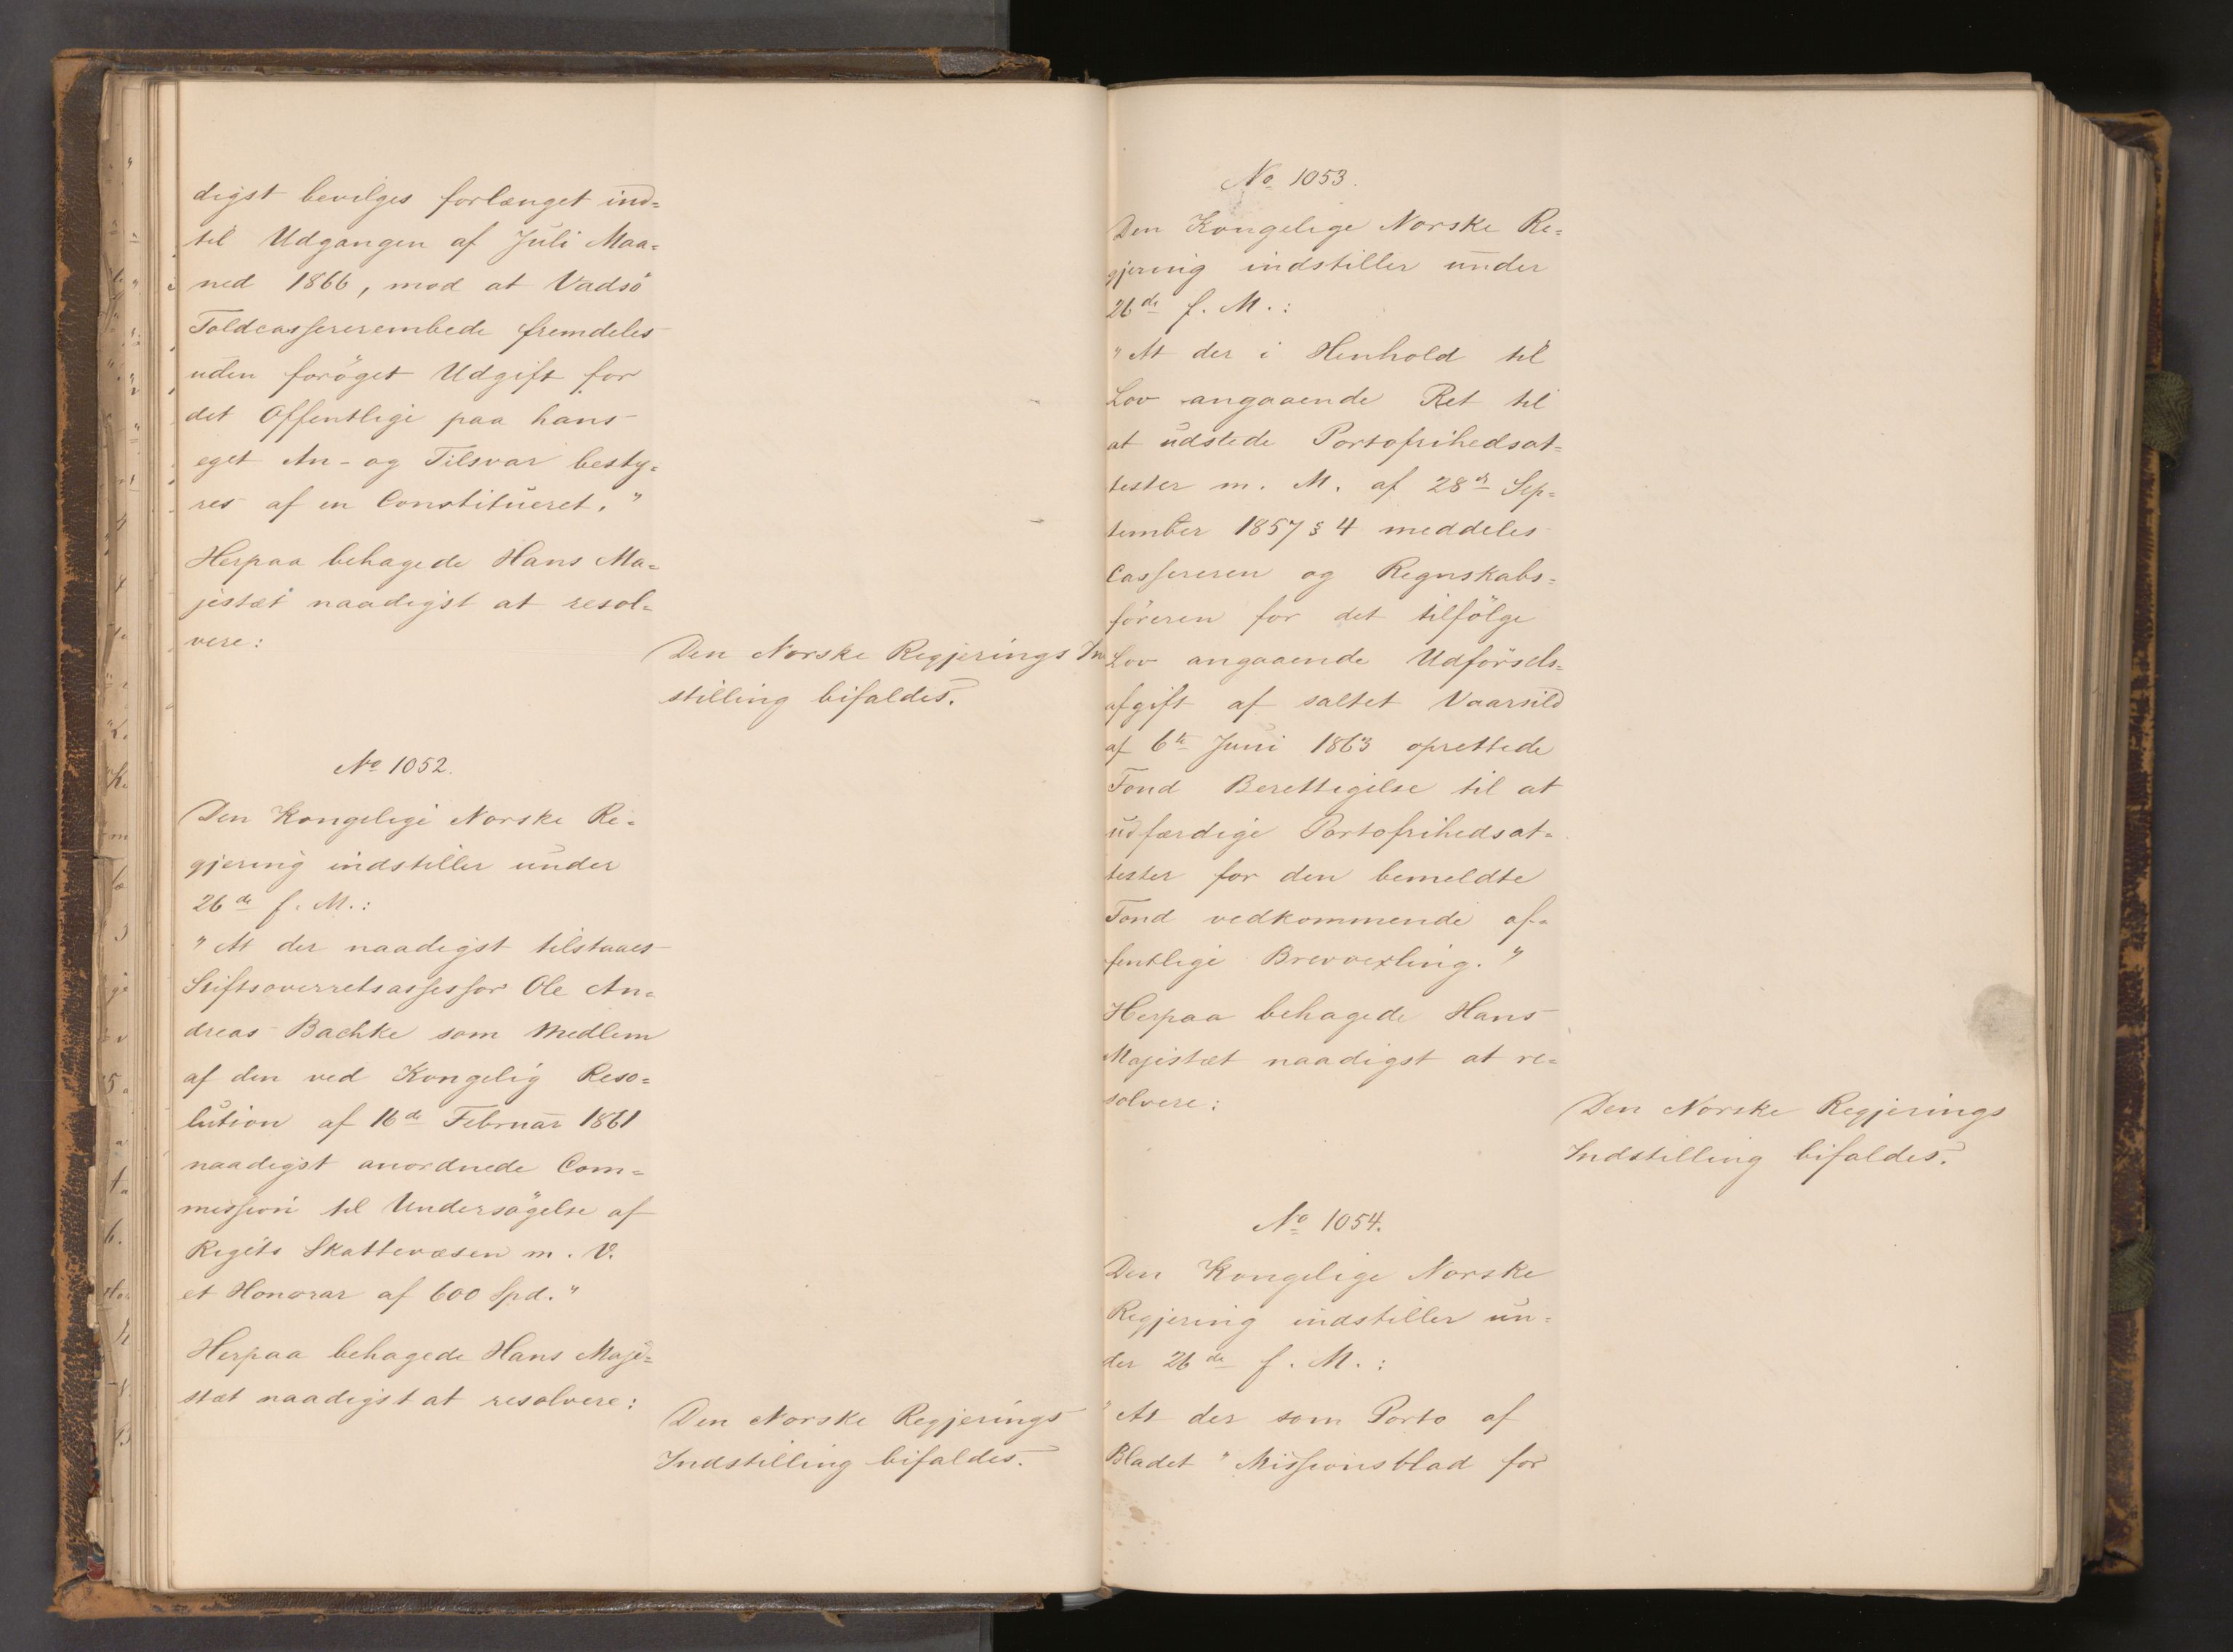 digst bevilges forlænget ind=
til Udgangen af Juli Maa=
ned 1866, mod at Vadsö
Toldcassererembede fremdeles
uden foröget Udgift for
det Offentlige paa hans
eget An- og Tilsvar besty=
res af en Constitueret."
Herpaa behagede Hans Ma=
jestæt naadigst at resol=
vere:
Den Norske Regjerings In
stilling bifaldes.
No 1052.
Den Kongelige Norske Re=
gjering indstiller under
26de f. M.:
"At der naadigst tilstaaes
Stiftsoverretsassessor Ole An=
dreas Bachke som Medlem
af den ved Kongelig Reso=
lution af 16de Februar 1861
naadigst anordnede Com=
mission til Undersögelse af
Rigets Skattevæsen m. V.
et Honorar af 600 Spd."
Herpaa behagede Hans Maje=
stæt naadigst at resolvere:
Den Norske Regjerings
Indstilling bifaldes.
No 1053.
Den Kongelige Norske Re=
gjering indstiller under
26de f. M.:
"At der i Henhold til
Lov angaaende Ret til
at udstede Portofrihedsat=
tester m. M. af 28de Sep=
tember 1857 § 4 meddeles
Cassereren og Regnskabs=
föreren for det tilfölge
Lov angaaende Udförsels=
afgift af saltet Vaarsild
af 6te Juni 1863 oprettede
Fond Berettigelse til at
udfærdige Portofrihedsat=
tester for den bemeldte
Fond vedkommende of=
fentlige Brevvexling."
Herpaa behagede Hans
Majestæt naadigst at re=
solvere:
Den Norske Regjerings
Indstilling bifaldes.
No 1054.
Den Kongelige Norske
Regjering indstiller un=
der 26de f. M.:
"At der som Porto af
Bladet "Missionsblad for